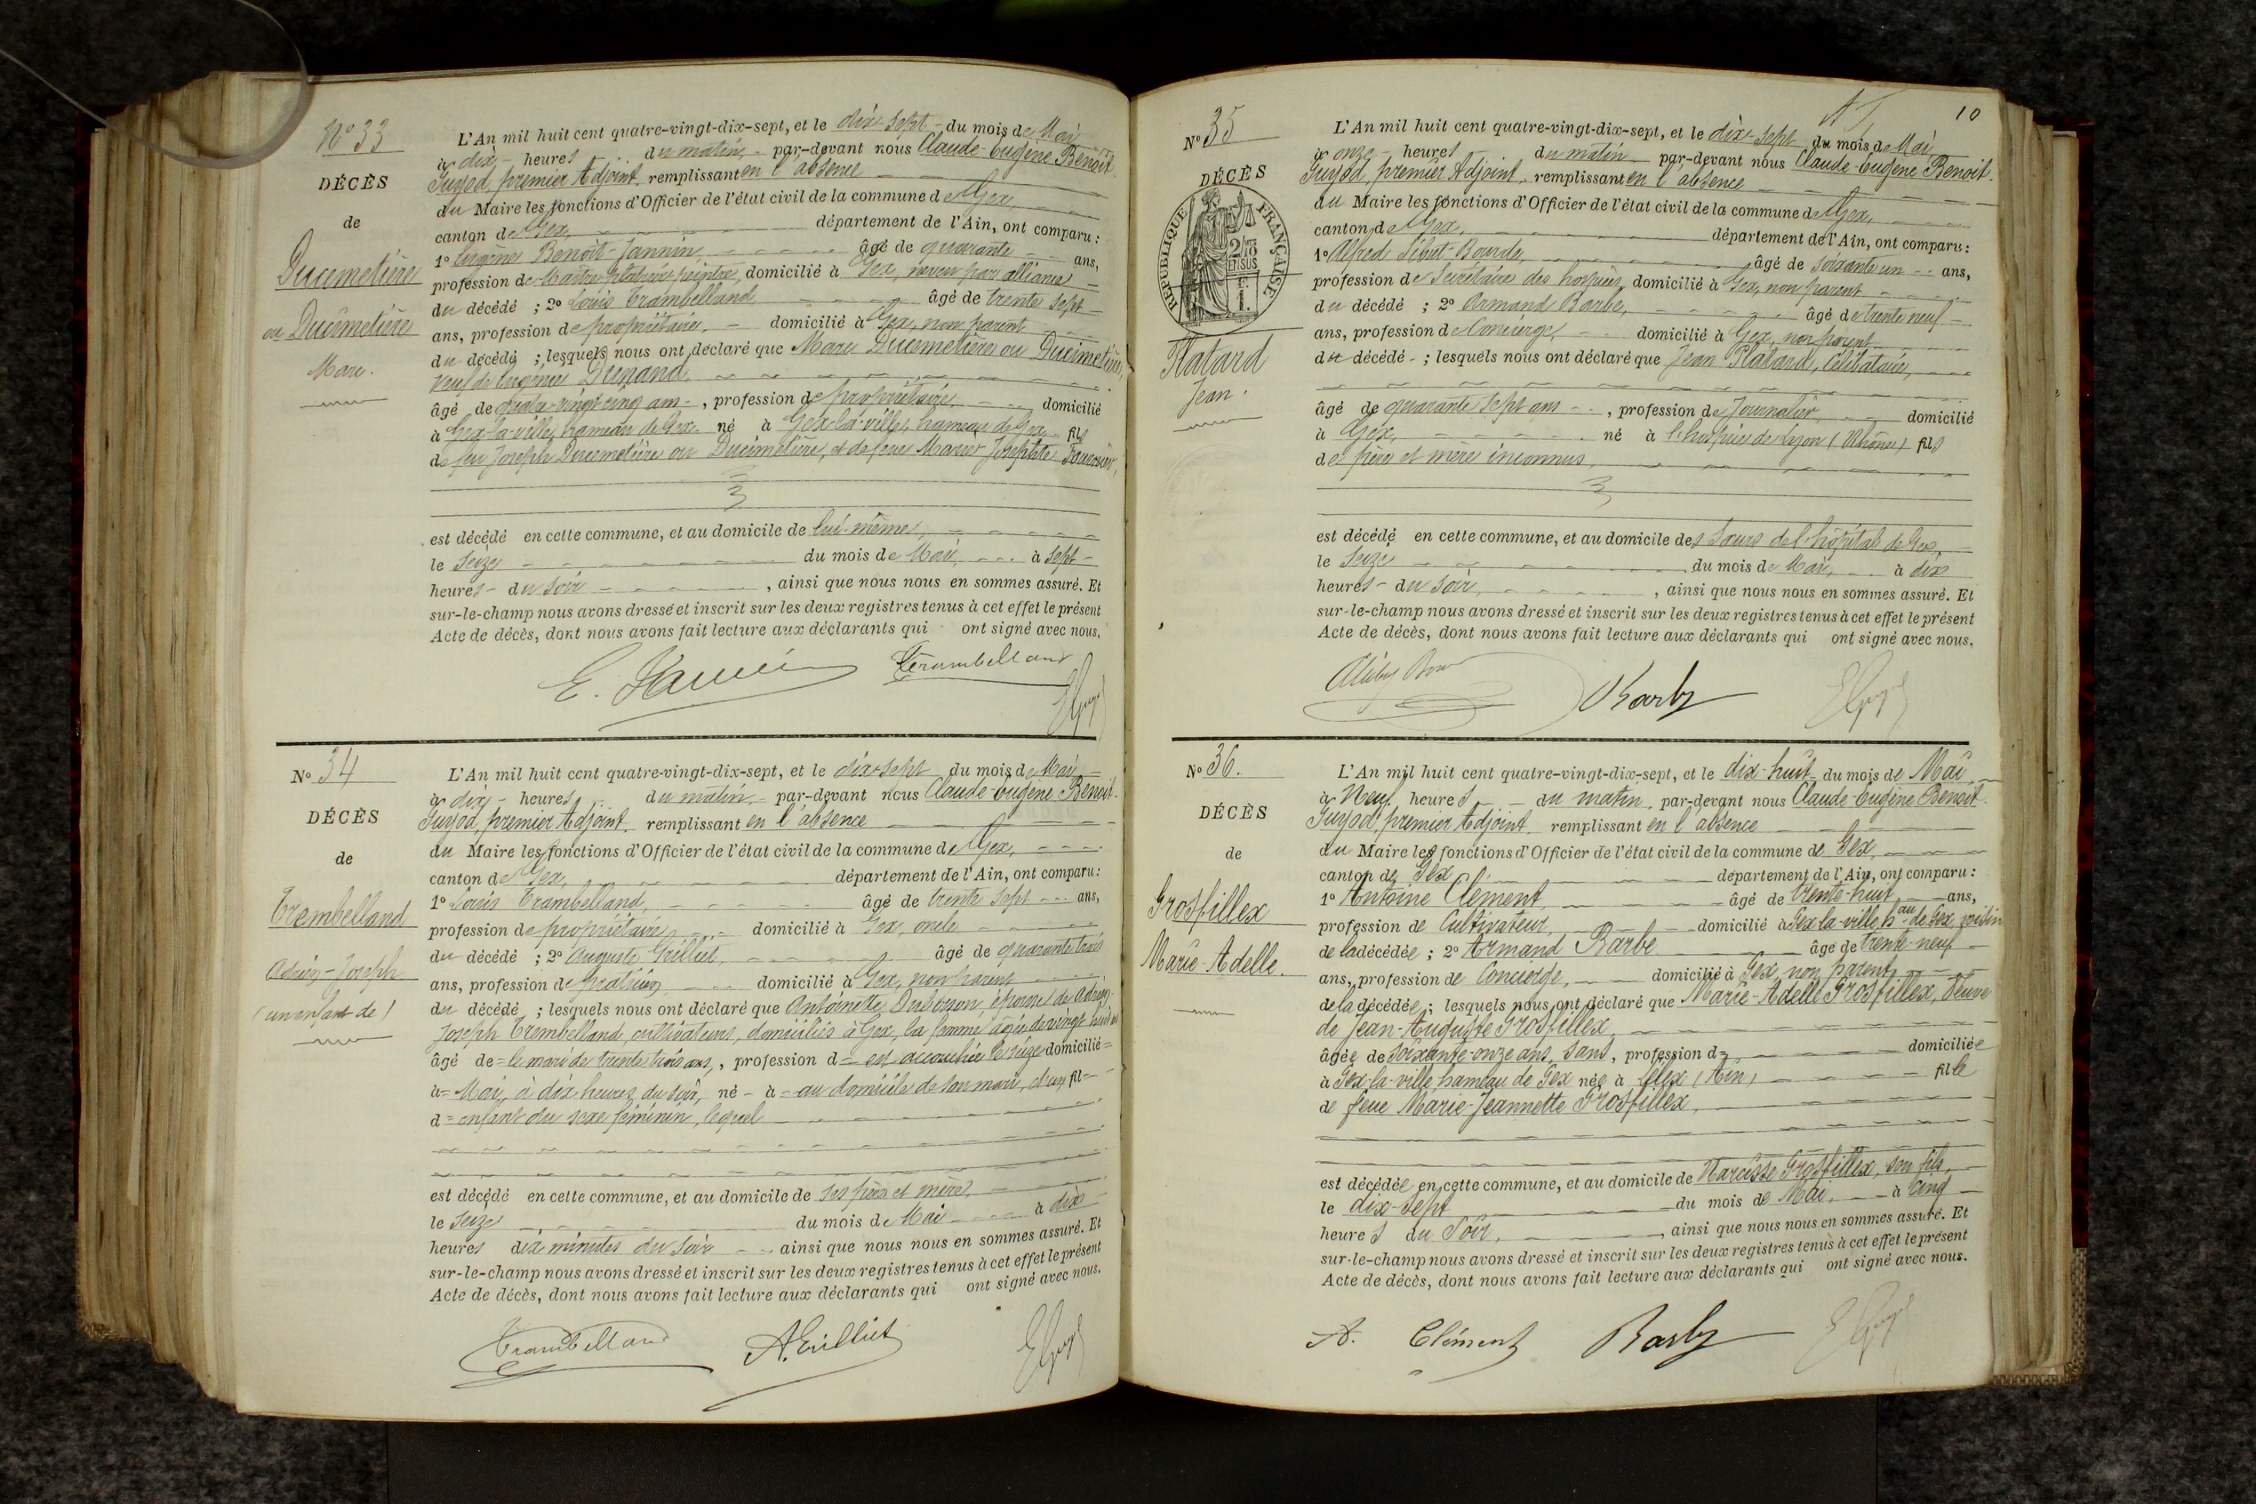 Nº 33
DÉCÈS
de
Ducimetière
ou Ducimetière
Marc.
L'An mil huit cent quatre-vingt-dix-sept, et le dix-sept du mois de Mai
à dix heures du matin par-devant nous Claude-Eugène Benoit
Guyod, premier Adjoint remplissant en l'absence
du Maire les fonctions d'Officier de l'état civil de la commune de Gex,
canton de Gex, département de l'Ain, ont comparu :
1º Eugène Benoît-Jannin âgé de quarante ans,
profession de Maître plâtrier peintre, domicilié à Gex, neveu par alliance
du décédé ; 2º Louis Trambelland âgé de trente sept
ans, profession de propriétaire, domicilié à Gex, non parent
du décédé ; lesquels nous ont déclaré que Marc Ducimetière ou Ducimetière,
veuf de Eugénie Dunand,
âgé de quatre-vingt-cinq ans, profession de propriétaire domicilié
à Gex-la-ville, hameau de Gex né à Gex-la-ville, hameau de Gex fils
de feu Joseph Ducimetière ou Ducimetière, et de feue Marie Josephte
est décédé en cette commune, et au domicile de lui-même,
le seize du mois de Mai, à sept
heures du soir, ainsi que nous nous en sommes assuré. Et
sur-le-champ nous avons dressé et inscrit sur les deux registres tenus à cet effet le présent
Acte de décès, dont nous avons fait lecture aux déclarants qui ont signé avec nous.
E. Jannin Trambelland EGuyod
Nº 34
DÉCÈS
de
Trembelland
Adrien-Joseph
(un enfant de)
L'An mil huit cent quatre-vingt-dix-sept, et le dix-sept du mois de Mai
à dix heures du matin par-devant nous Claude-Eugène Benoit
Guyod, premier Adjoint remplissant en l'absence
du Maire les fonctions d'Officier de l'état civil de la commune de Gex,
canton de Gex, département de l'Ain, ont comparu :
1º Louis Trambelland, âgé de trente sept ans,
profession de propriétaire, domicilié à Gex, oncle
du décédé ; 2º Auguste Grilliet, âgé de quarante trois
ans, profession de praticien, domicilié à Gex, non parent
du décédé ; lesquels nous ont déclaré que Antoinette Duboson, épouse de Adrien
Joseph Trembelland, cultivateurs, domiciliés à Gex, la femme âgée de vingt huit ans
âgé de = le mari de trente trois ans, profession d = est accouchée le seize domicilié =
à = Mai, à dix heures du soir, né - à = au domicile de son mari, d'un fil =
d = enfant du sexe féminin, lequel
est décédé en cette commune, et au domicile de ses père et mère,
le seize du mois de Mai à dix
heures dix minutes du soir ainsi que nous nous en sommes assuré. Et
sur-le-champ nous avons dressé et inscrit sur les deux registres tenus à cet effet le présent
Acte de décès, dont nous avons fait lecture aux déclarants qui ont signé avec nous.
Trambelland A. Grilliet EGuyod
10
Nº 35
DÉCÈS
RÉPUBLIQUE FRANÇAISE
2/10 EN SUS
Platard
Jean.
L'An mil huit cent quatre-vingt-dix-sept, et le dix-sept du mois de Mai
à onze heures du matin par-devant nous Claude-Eugène Benoit
Guyod, premier Adjoint remplissant en l'absence
du Maire les fonctions d'Officier de l'état civil de la commune de Gex,
canton de Gex, département de l'Ain, ont comparu :
1º Alfred âgé de soixante un ans,
profession de Secrétaire des hospices, domicilié à Gex, non parent
du décédé ; 2º Armand Barbe, âgé de trente neuf
ans, profession de Concierge, domicilié à Gex, non parent
du décédé ; lesquels nous ont déclaré que Jean Platard, célibataire,
âgé de quarante sept ans, profession de Journalier, domicilié
à Gex, né à l'hospice de Lyon (Rhône) fils
de père et mère inconnus,
est décédé en cette commune, et au domicile des Sœurs de l'hôpital de Gex,
le seize du mois de Mai, à dix
heures du soir, ainsi que nous nous en sommes assuré. Et
sur-le-champ nous avons dressé et inscrit sur les deux registres tenus à cet effet le présent
Acte de décès, dont nous avons fait lecture aux déclarants qui ont signé avec nous.
Barbe EGuyod
Nº 36.
DÉCÈS
de
Grosfillex
Marie-Adelle.
L'An mil huit cent quatre-vingt-dix-sept, et le dix-huit du mois de Mai
à Neuf heures du matin, par-devant nous Claude-Eugène Benoit
Guyod, premier Adjoint remplissant en l'absence
du Maire les fonctions d'Officier de l'état civil de la commune de Gex,
canton de Gex département de l'Ain, ont comparu :
1º Antoine Clément, âgé de trente-huit ans,
profession de Cultivateur, domicilié à Gex-la-ville, hau de Gex, voisin
de la décédée ; 2º Armand Barbe âgé de trente-neuf
ans, profession de Concierge, domicilié à Gex, non parent,
de la décédée ; lesquels nous ont déclaré que Marie-Adelle Grosfillex, Veuve
de Jean-Auguste Grosfillex,
âgée de soixante-onze ans, sans, profession d domiciliée
à Gex-la-ville hameau de Gex née à Lélex (Ain) fille
de feue Marie-Jeannette Grosfillex,
est décédée en cette commune, et au domicile de Narcisse Grosfillex, son fils,
le dix-sept du mois de Mai, à cinq
heures du Soir, ainsi que nous nous en sommes assuré. Et
sur-le-champ nous avons dressé et inscrit sur les deux registres tenus à cet effet le présent
Acte de décès, dont nous avons fait lecture aux déclarants qui ont signé avec nous.
A. Clément Barbe EGuyod